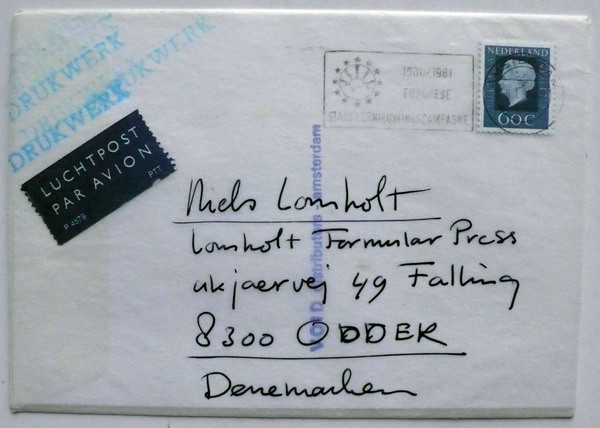 DRUKWERK
DRUKWERK
DRUKWERK
LUCHTPOST
PAR AVION
P 4578
PTT
1980/1981
EUROPESE
STADSVERNIEUWINGSCAMPAGNE
NEDERLAND
60 C
distributors amsterdam
Niels Lomholt
Lomholt Formular Press
ukjaervej 49 Falling
8300 ODDER
Denemarken